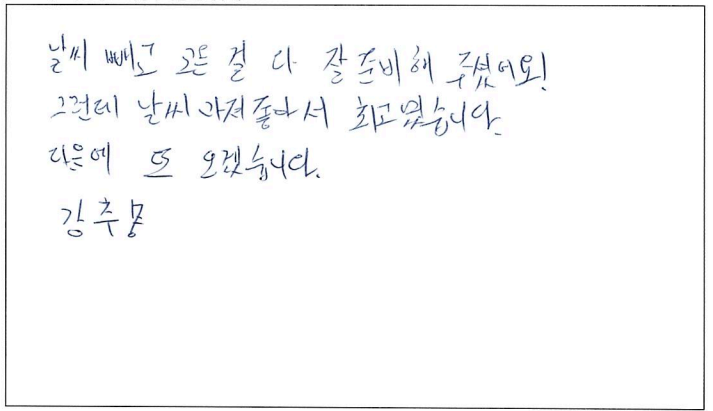 날씨 빼고 모든 걸 다 잘 준비해 주셨어요!
그런데 날씨까지 좋아서 최고였습니다.
다음에 또 오겠습니다.
강추